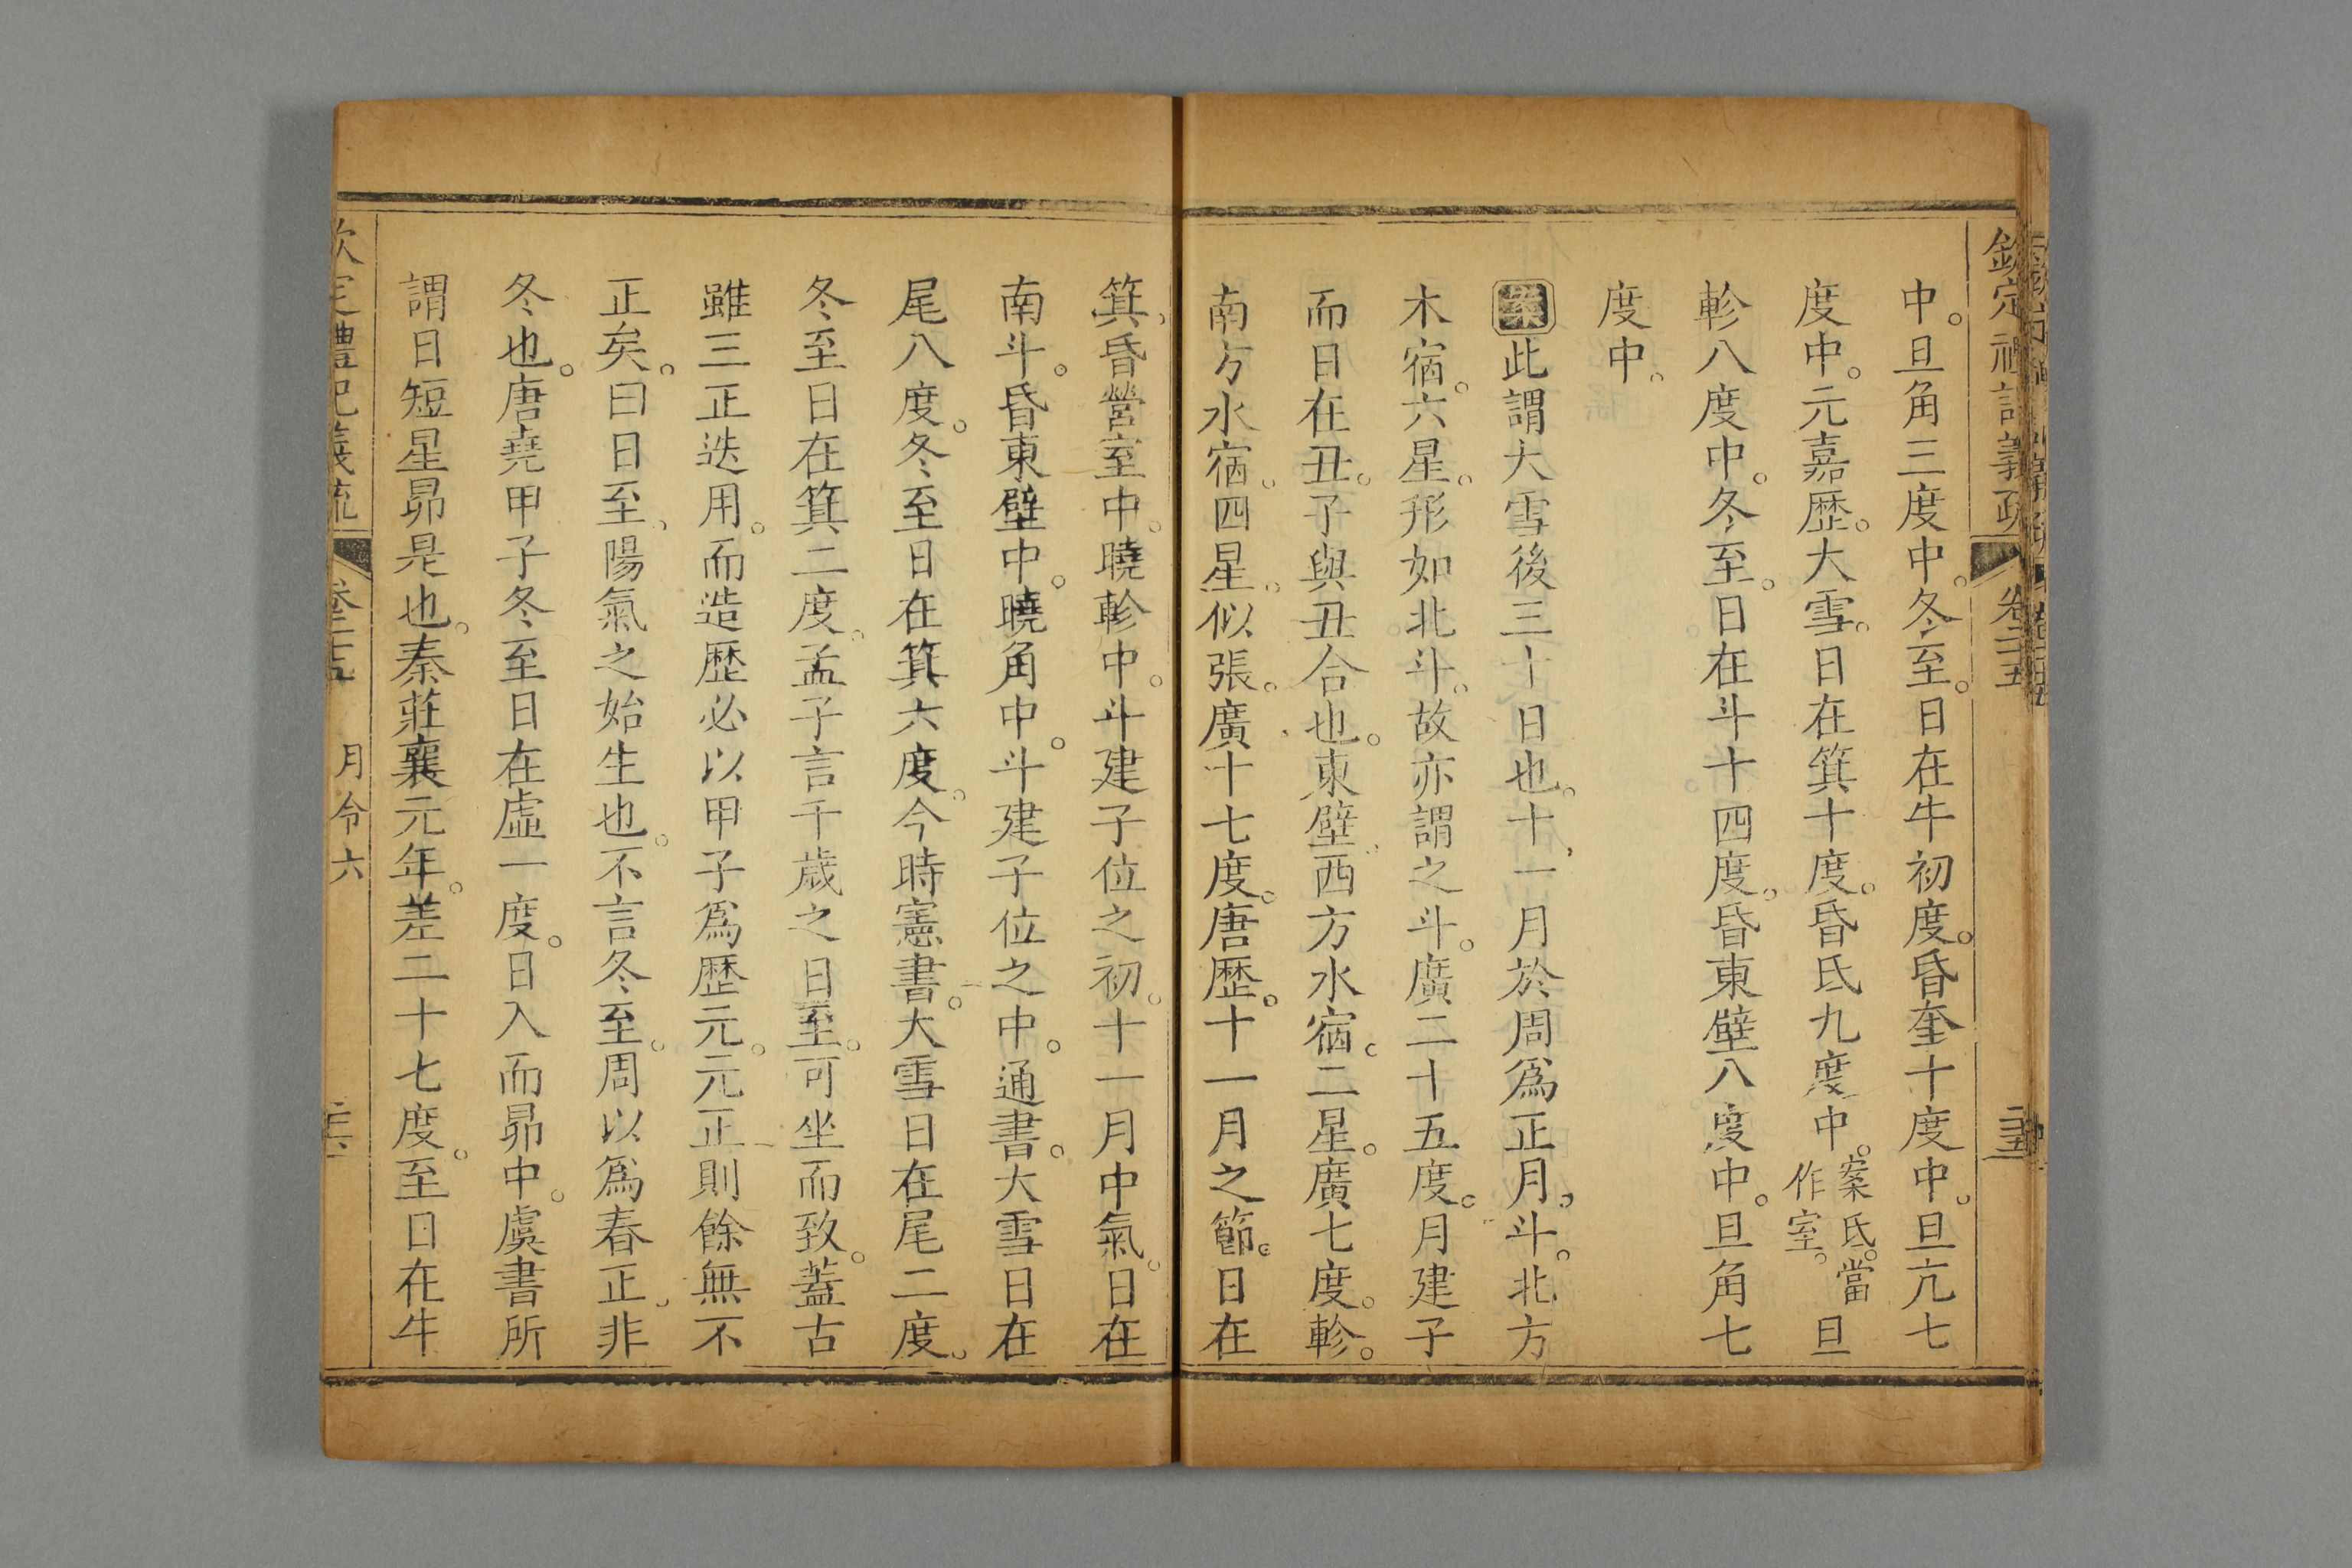 欽定禮記義疏 卷二十五 二五
中。旦角三度中。冬至。日在牛初度。昏奎十度中。旦亢七
度中。元嘉歷。大雪。日在箕十度。昏氐九度中。案氐。當作室。旦
軫八度中。冬至。日在斗十四度。昏東壁八度中。旦角七
度中。
案此謂大雪後三十日也。十一月於周爲正月。斗。北方
木宿。六星。形如北斗。故亦謂之斗。廣二十五度。月建子
而日在丑。子與丑合也。東壁。西方水宿。二星。廣七度。軫。
南方水宿。四星。似張。廣十七度。唐歷。十一月之節。日在
箕。昏營室中。曉軫中。斗建子位之初。十一月中氣。日在
南斗。昏東壁中。曉角中。斗建子位之中。通書。大雪日在
尾八度。冬至日在箕六度。今時憲書。大雪日在尾二度。
冬至日在箕二度。孟子言千歲之日至。可坐而致。蓋古
雖三正迭用。而造歷必以甲子爲歷元。元正則餘無不
正矣。曰日至。陽氣之始生也。不言冬至。周以爲春正。非
冬也。唐堯甲子冬至日在虛一度。日入而昴中。虞書所
謂日短星昴是也。秦莊襄元年。差二十七度。至日在牛
欽定禮記義疏 卷二十五 月令六